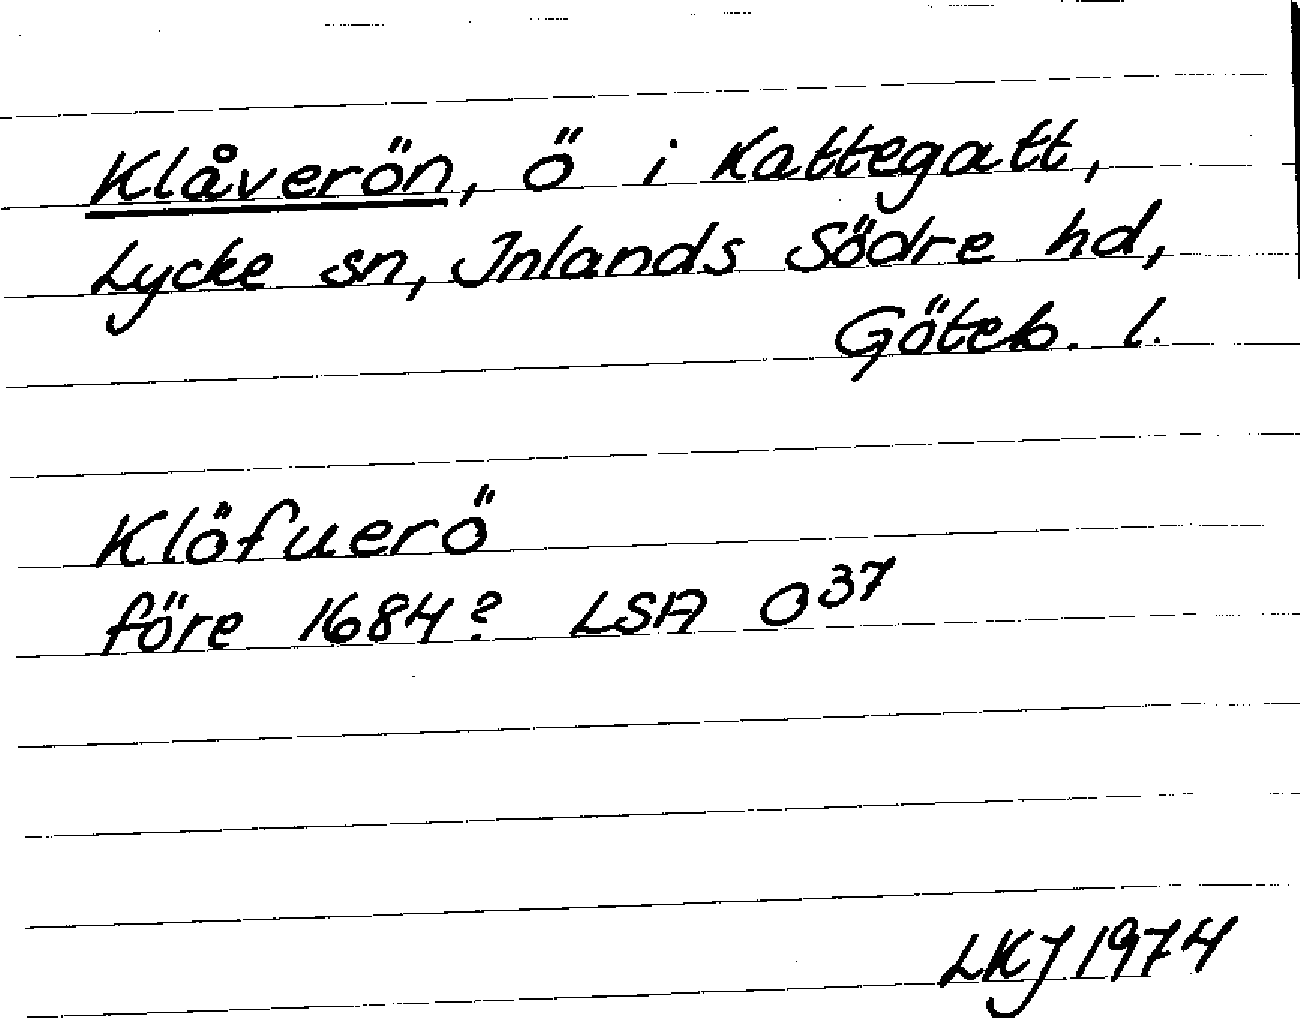 Klåverön, ö i Kattegatt,
Lycke sn, Inlands Södre hd,
Göteb. l.
Klöfuerö
före 1684? LSA O³⁷
LKJ 1974